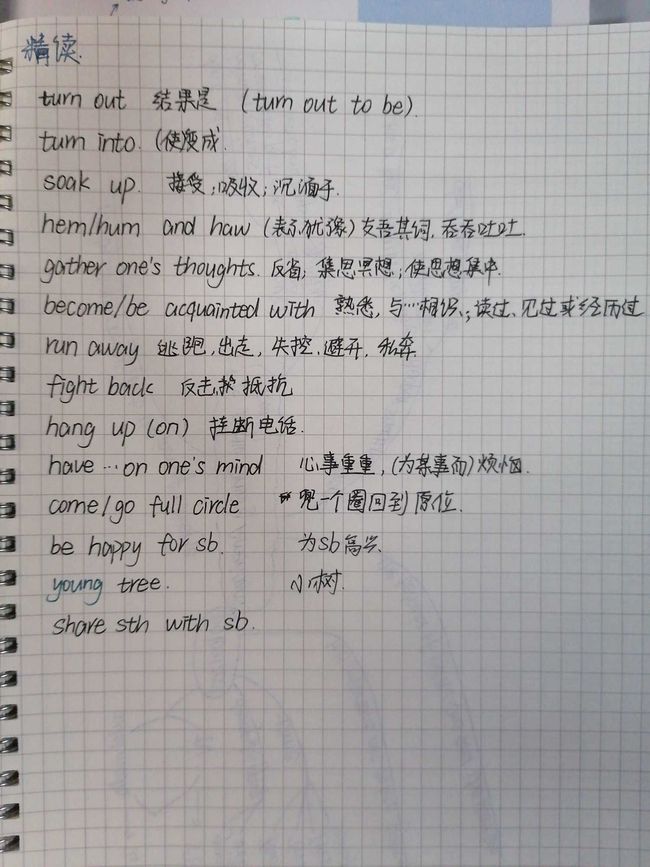 精读.
turn out 结果是 (turn out to be).
turn into. (使)变成.
soak up. 接受;吸收;沉湎于.
hem/hum and haw (表示犹豫)支吾其词, 吞吞吐吐.
gather one's thoughts. 反省; 集思冥想; 使思想集中.
become/be acquainted with 熟悉, 与…相识.; 读过、见过或经历过
run away 逃跑, 出走, 失控、避开, 私奔
fight back 反击, 抵抗
hang up (on) 挂断电话.
have … on one's mind 心事重重, (为某事而)烦恼.
come/go full circle 一个圈回到原位.
be happy for sb. 为sb高兴.
young tree. 小树.
share sth with sb.